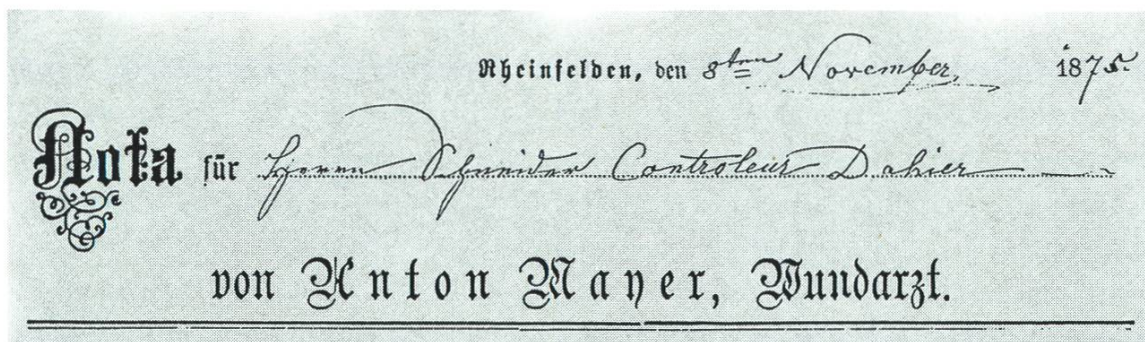 Rheinfelden, den 8ten November, 1875.
Nota für Herrn Schneider Controleur Dahier
von Anton Mayer, Wundarzt.